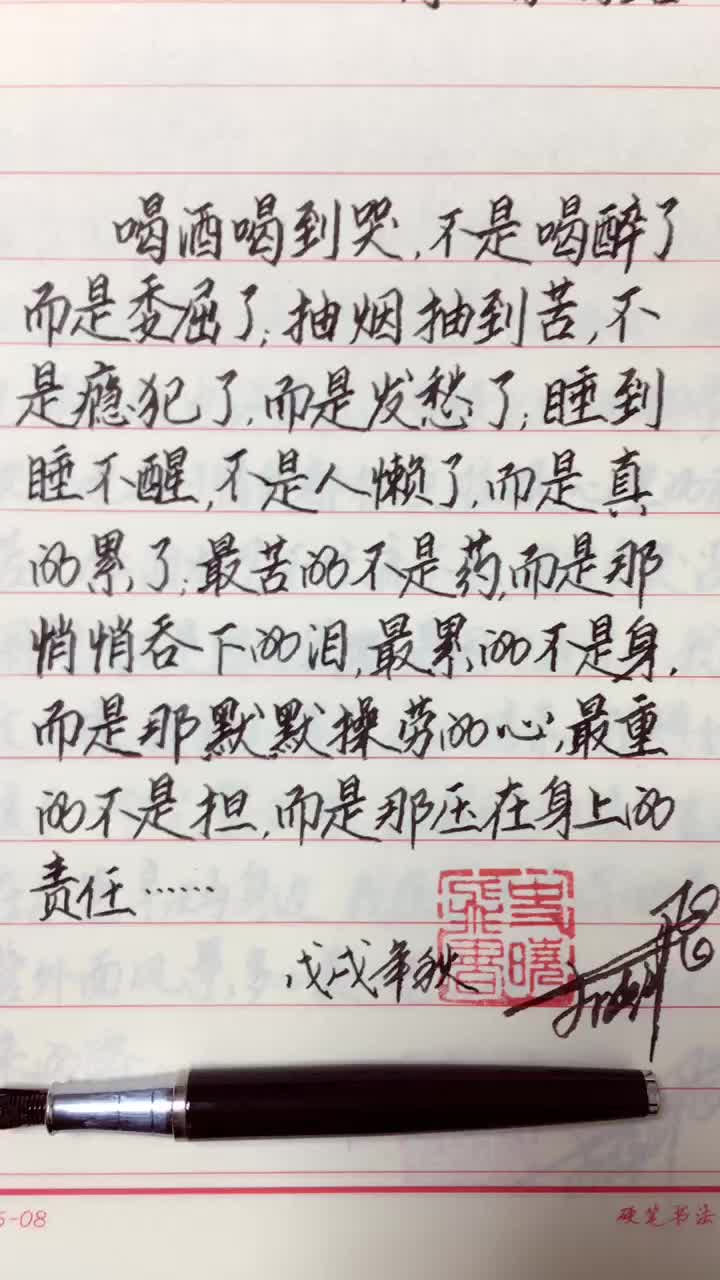 喝酒喝到哭,不是喝醉了
而是委屈了;抽烟抽到苦,不
是瘾犯了,而是发愁了;睡到
睡不醒,不是人懒了,而是真
的累了;最苦的不是药,而是那
悄悄吞下的泪,最累的不是身,
而是那默默操劳的心,最重
的不是担,而是那压在身上的
责任……
戊戌年秋
5-08
硬笔书法